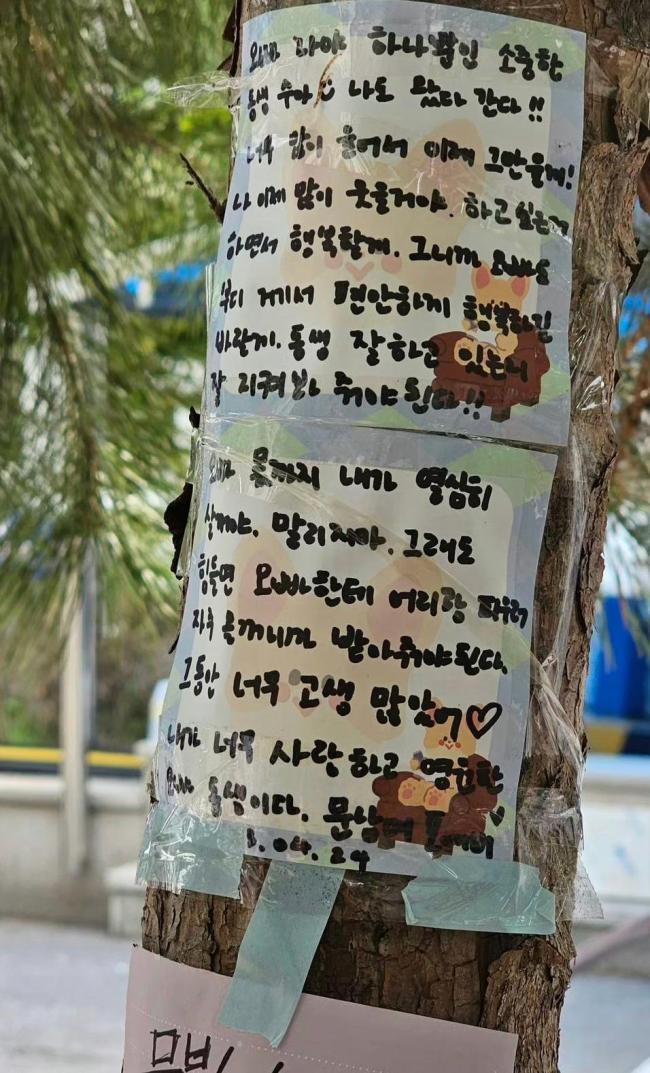 오빠 나야 하나뿐인 소중한
동생 수아 나도 왔다 간다!!
너무 많이 울어서 이제 그만울게!
나 이제 많이 웃을거야. 하고싶은거
하면서 행복할게. 그니까 오빠도
부디 거기서 편안하게 행복하길
바랄게. 동생 잘하고 있는지
잘 지켜봐 줘야된다!!
오빠 몫까지 내가 열심히
살거야. 말리지마. 그래도
힘들면 오빠한테 어리광
자주 올꺼니까 받아줘야된다.
그동안 너무 고생 많았어♡
내가 너무 사랑하고 영원한
오빠 동생이다. 문
3.04.24
문빈